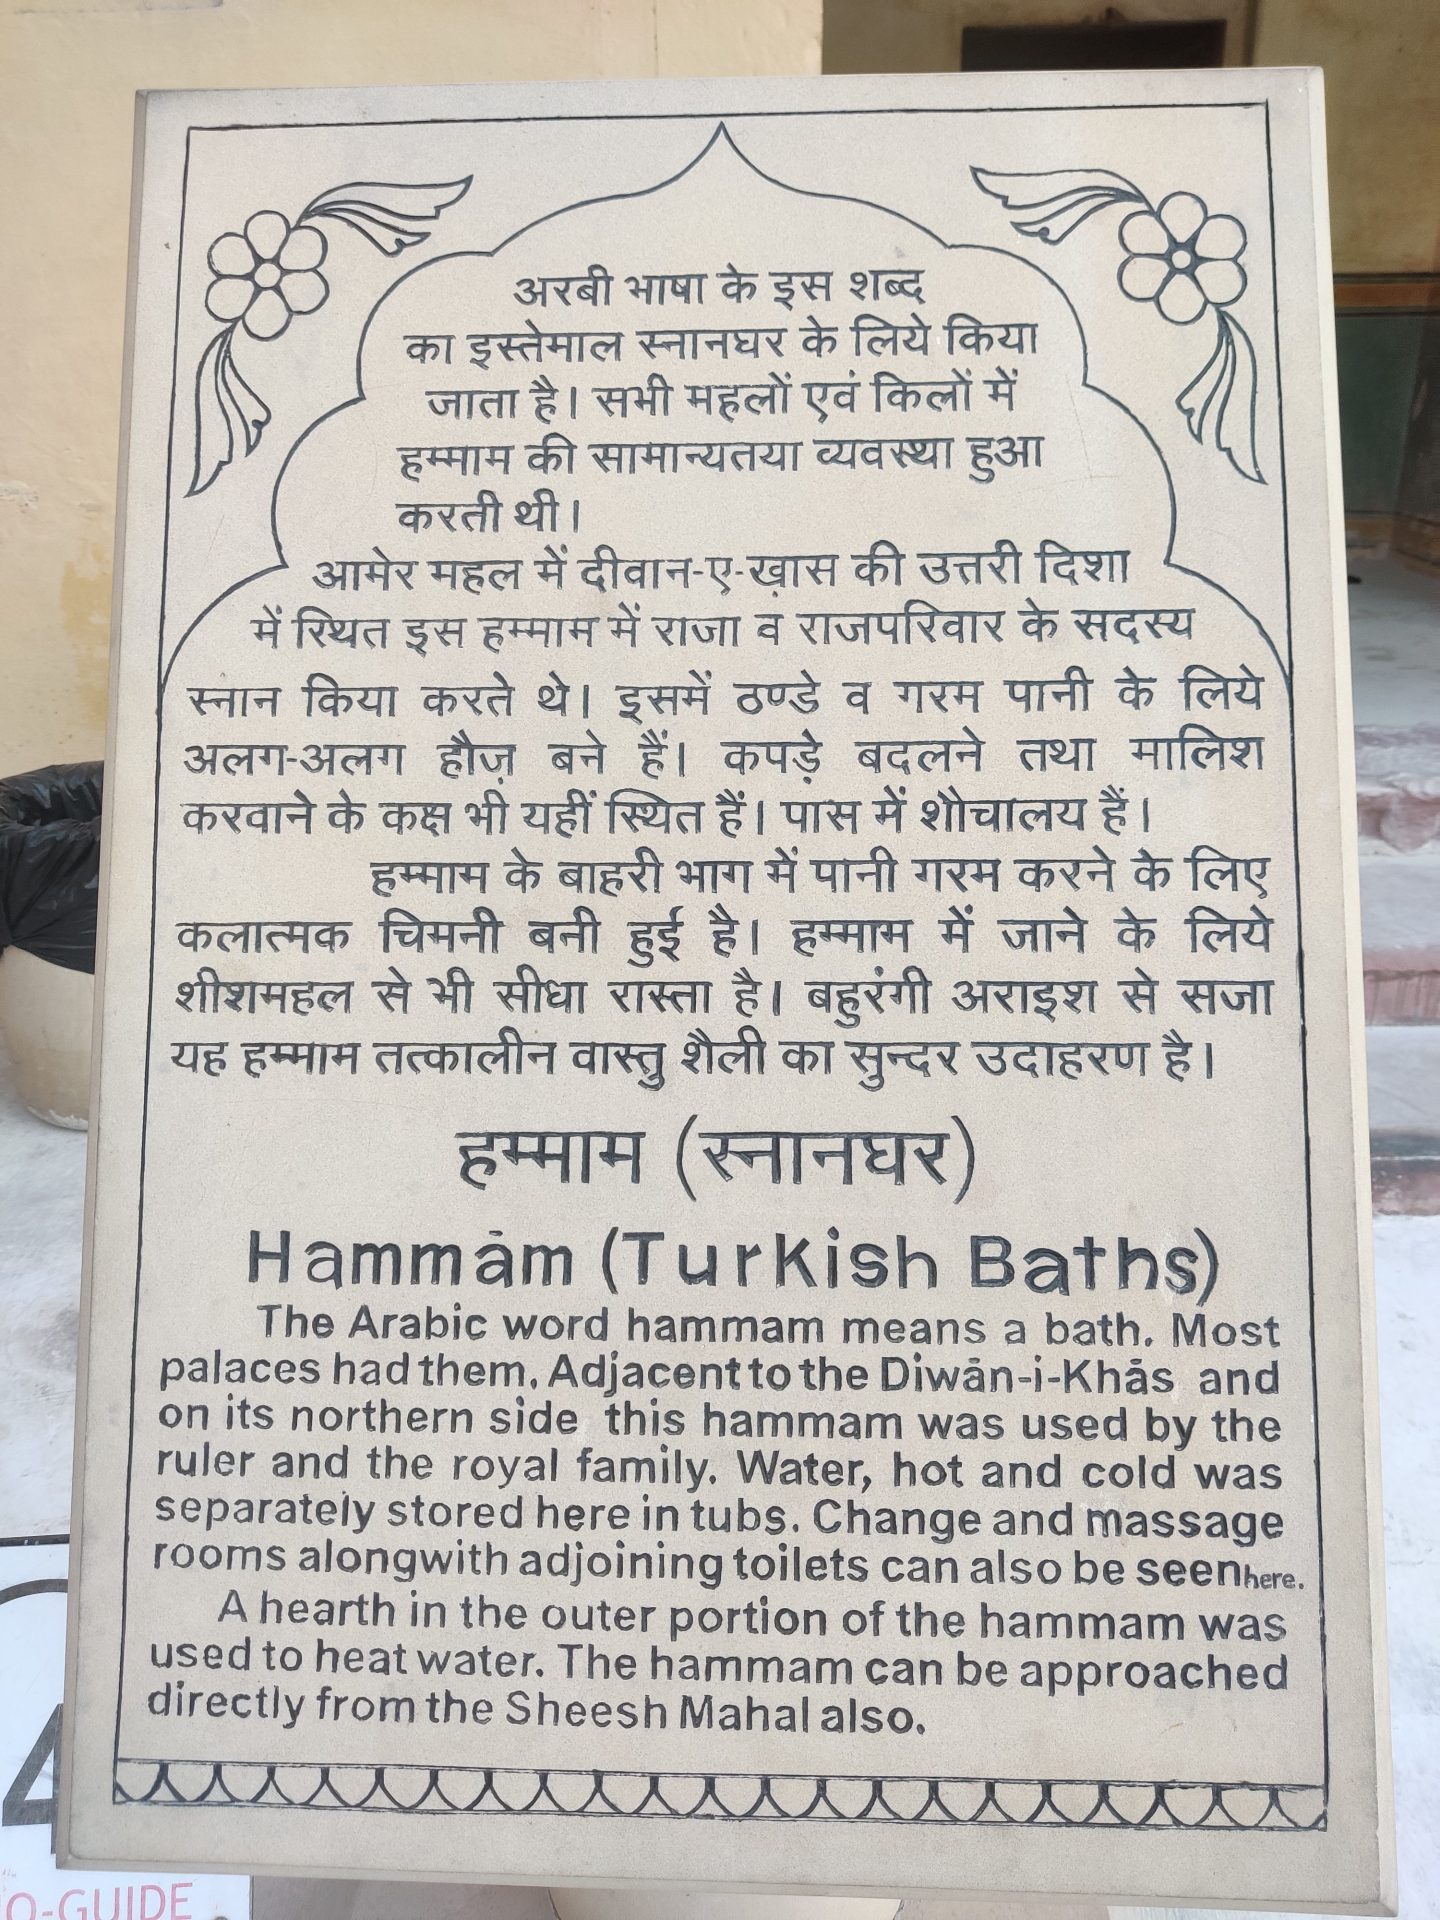 अरबी भाषा के इस शब्द
का इस्तेमाल स्नानघर के लिये किया
जाता है। सभी महलों एवं किलों में
हम्माम की सामान्यतया व्यवस्था हुआ
करती थी।
आमेर महल में दीवान-ए-ख़ास की उत्तरी दिशा
में स्थित इस हम्माम में राजा व राजपरिवार के सदस्य
स्नान किया करते थे। इसमें ठण्डे व गरम पानी के लिये
अलग-अलग हौज़ बने हैं। कपड़े बदलने तथा मालिश
करवाने के कक्ष भी यहीं स्थित हैं। पास में शौचालय हैं।
हम्माम के बाहरी भाग में पानी गरम करने के लिए
कलात्मक चिमनी बनी हुई है। हम्माम में जाने के लिये
शीशमहल से भी सीधा रास्ता है। बहुरंगी अराइश से सजा
यह हम्माम तत्कालीन वास्तु शैली का सुन्दर उदाहरण है।
हम्माम (स्नानघर)
Hammām (Turkish Baths)
The Arabic word hammam means a bath. Most
palaces had them. Adjacent to the Diwān-i-Khās and
on its northern side this hammam was used by the
ruler and the royal family. Water, hot and cold was
separately stored here in tubs. Change and massage
rooms alongwith adjoining toilets can also be seen here.
A hearth in the outer portion of the hammam was
used to heat water. The hammam can be approached
directly from the Sheesh Mahal also.
4
O-GUIDE